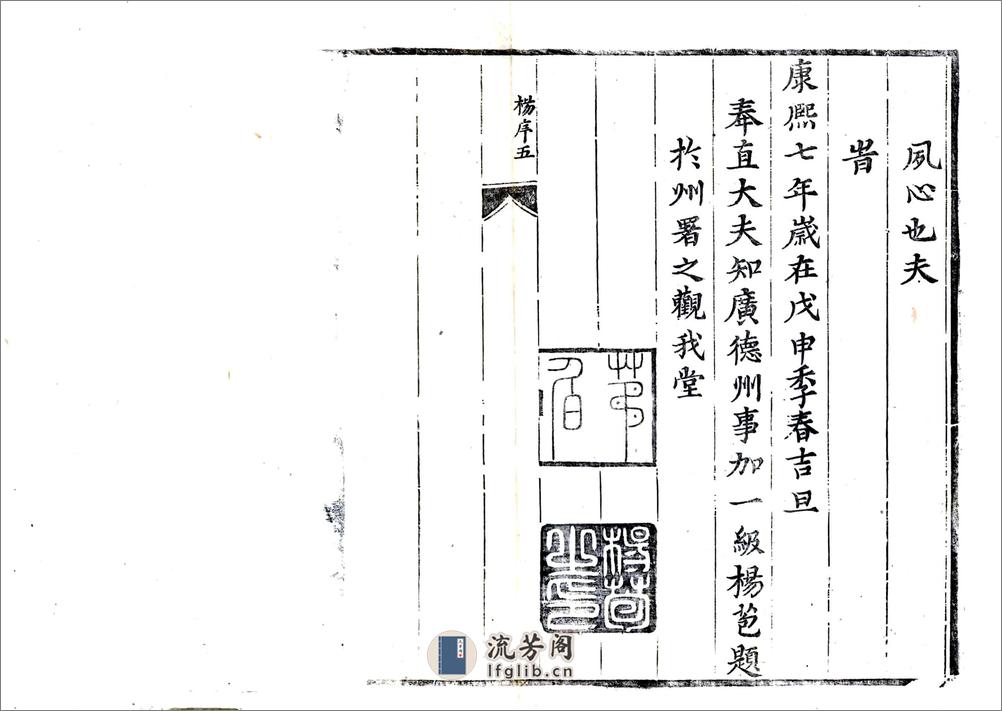 夙心也夫
旹
康熙七年歲在戊申季春吉旦
奉直大夫知廣德州事加一級楊苞題
於州署之觀我堂
楊苞之印
楊序五
流芳阁
lfglib.cn